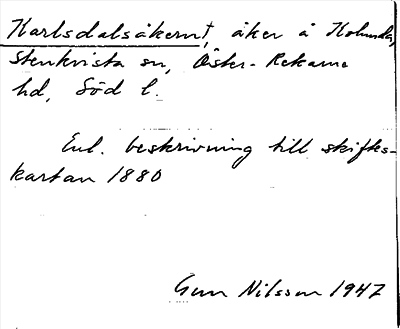 Karlsdalsåkern†, åker å Holmsta,
Stenkvista sn, Öster-Rekarne
hd, Söd l.
Enl. beskrivning till skifts-
kartan 1880
Gun Nilsson 1947